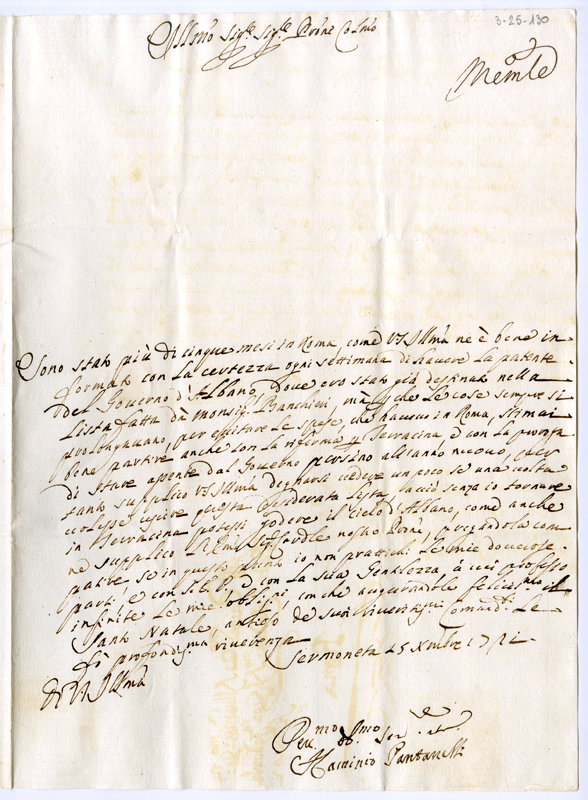 3-25-130
Illmo Sigre Sigre Prōne Colmo
Memle
Sono stato più di cinque mesi in Roma, come VS Illma ne è bene in-
formato con la certezza ogni settimana di havere la patente
del Governo d'Albano, dove ero stato già destinato nella
Lista fatta da Monsigr Banchieri, ma che le cose sempre si
prolongavano, per evitare le spese, che facevo in Roma, stimai
bene partire anche con la riferma di Terracina, e con la proroga
di stare assente dal Governo persino all'anno nuovo,
tanto supplico VS Illma degnarsi vedere un poco se una volta
volesse uscire questa desiderata Lista, acciò senza io tornare
in Terracina potessi godere il cielo d'Albano, come anche
ne supplico l'Emo Sigr Cardle nostro Prōne, pregandola com-
patire se in questo punto io non pratichi le mie doverose
parti, e con S.E. P. e con la sua Gentilezza, à cui professo
infinite le mie obligni, con che augurandole felicissmo il
Santo Natale, ansioso de suoi riveritssmi comandi Le
fò profondissma riverenza
Di VS Illma
Sermoneta 25 Xmbre 1712
Devmo Obbmo Ser
Flaminio Pantanelli